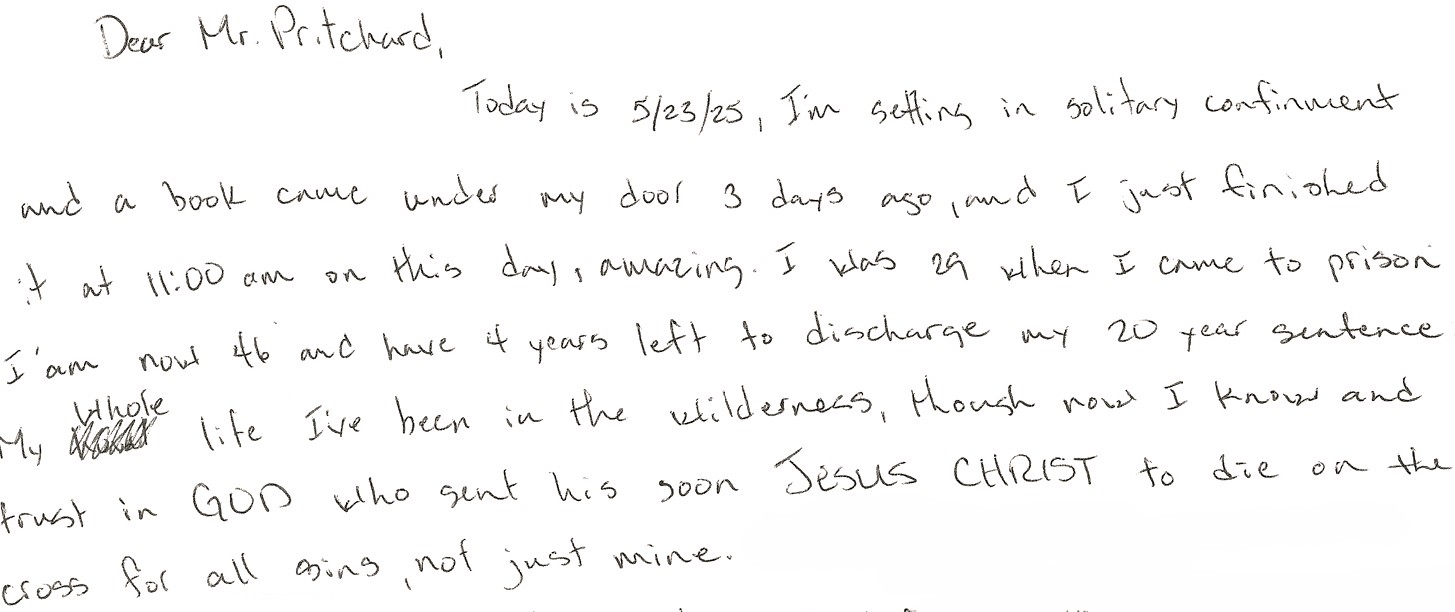 Dear Mr. Pritchard,
Today is 5/23/25, I'm setting in solitary confinment
and a book came under my door 3 days ago, and I just finished
it at 11:00 am on this day, amazing. I was 29 when I came to prison
I'am now 46 and have 4 years left to discharge my 20 year sentence
My Whole life I've been in the wilderness, though now I know and
trust in GOD who sent his soon JESUS CHRIST to die on the
cross for all sins, not just mine.